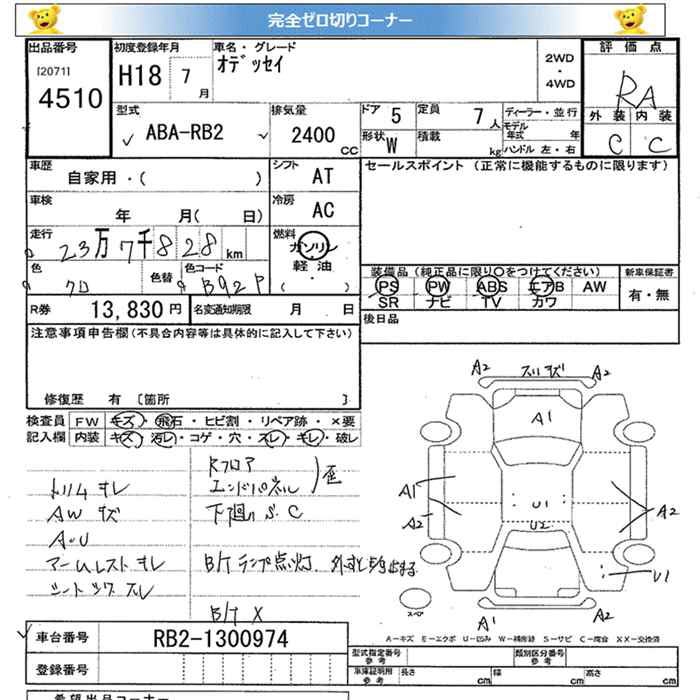 完全ゼロ切りコーナー
出品番号 初度登録年月 車名・グレード 評価点
[20711] H18 7 月 オデッセイ 2WD ・ 4WD RA
4510 外装 内装
型式 排気量 ドア 5 定員 7 人 ディーラー・並行 C C
ABA-RB2 2400 CC 形状 W 積載 kg モデル年式 年
ハンドル 左・右
車歴 シフト セールスポイント (正常に機能するものに限ります)
自家用・( ) AT
車検 冷房
年 月( 日) AC
走行 燃料
23万7千828 km ガソリン
色 色替 色コード 軽油 装備品(純正品に限り○をつけてください) 新車保証書
クロ B92P ( ) PS PW ABS エアB AW 有・無
SR ナビ TV カワ
R券 13,830 円 名変通知期限 月 日 後日品
注意事項申告欄(不具合内容等は具体的に記入して下さい)
修復歴 有 [箇所 ]
検査員 FW キズ・飛石・ヒビ割・リペア跡・×要
記入欄 内装 キズ・汚レ・コゲ・穴・スレ・キレ・破レ
A2 スリキズ A2
A1
Rフロア
エンドパネル 歪
トリムオレ
AWキズ 下廻りS、C
A・U
アームレストオレ B/Tランプ点灯、
シート
B/T X
A1 A2 U1 U2 A2
U1
スペア
A1 A2
A-キズ E-エクボ U-凹み W-補修跡 S-サビ C-腐食 XX-交換済
車台番号 RB2-1300974
登録番号
型式指定番号 参考 類別区分番号 参考
車庫証明用 参考 長さ cm 幅 cm 高さ cm
希望出品コーナー